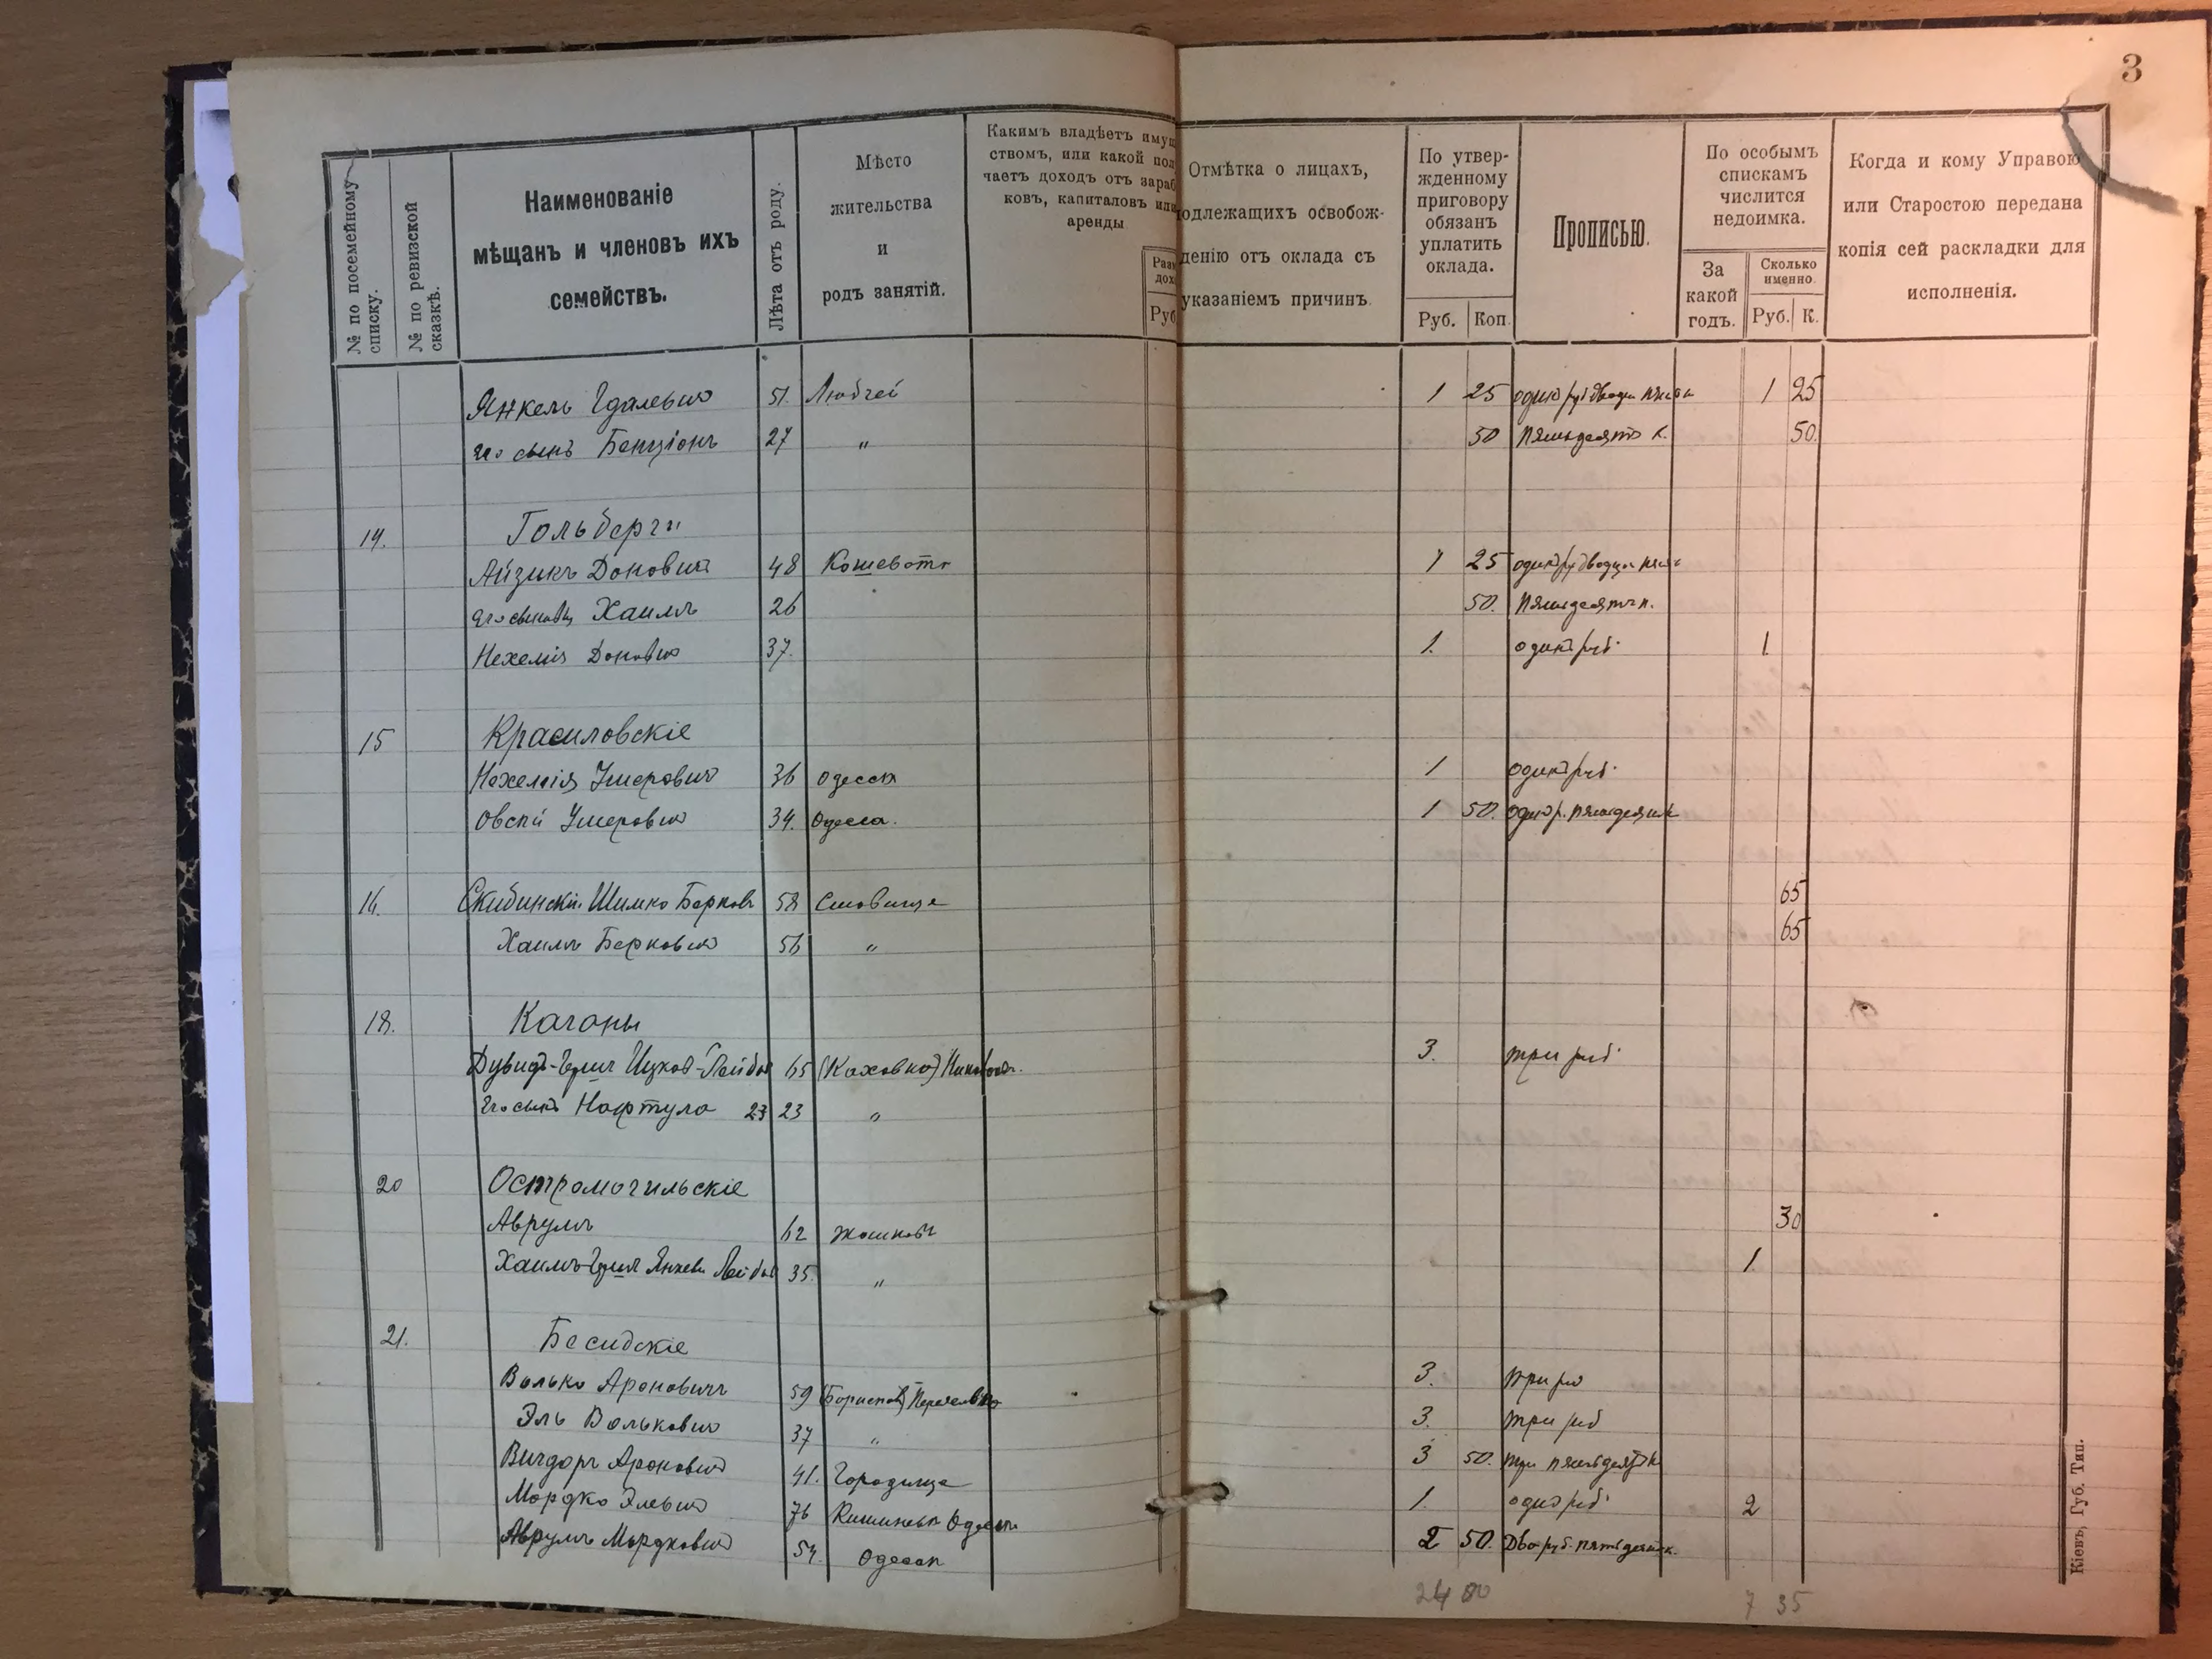 3
№ по посемейному списку.
№ по ревизской сказкѣ.
Наименованіе
мѣщанъ и членовъ ихъ
семействъ.
Лѣта отъ роду.
Мѣсто
жительства
и
родъ занятій.
Какимъ владѣетъ имущ
ствомъ, или какой пол
чаетъ доходъ отъ зараб
ковъ, капиталовъ или
аренды
Разм
дох
Руб
Отмѣтка о лицахъ,
подлежащихъ освобож-
денію отъ оклада съ
указаніемъ причинъ.
По утвер-
жденному
приговору
обязанъ
уплатить
оклада.
Руб. Коп.
Прописью.
По особымъ
спискамъ
числится
недоимка.
За
какой
годъ.
Сколько
именно.
Руб. К.
Когда и кому Управою
или Старостою передана
копія сей раскладки для
исполненія.
Янкель Гдалевич 51. 1 25 1 25
его сынъ Бенціонъ 27 „ 50 пятьдесятъ к. 50.
14. Гольберги
Айзикъ Доновичъ 48 Кошевото 1 25
Хаимъ 26 50. пятьдесятъ к.
Нехемія Донович 37. 1. один руб. 1.
15 Красиловскіе
Нехемія Умеровичъ 36 Одесса 1 один руб.
Овсѣй Умерович 34. Одесса. 1 50. один р. пятьдесят к
16. Скибинскій Шимко Берков 58 Ставище 65
Хаимъ Беркович 56 „ 65
18. Каганы
Дувидъ-Герш Ицков-Лейбов 65 (Каховка) 3. три руб.
его сынъ Нафтула 23 23 „
20 Остромогильскіе
Аврумъ 62 Жашковъ 30
Хаимъ-Герш Янкев Лейбов 35. „ 1.
21. Бесидскіе
Волько Ароновичъ 59 3. три ру
Эль Волькович 37 „ 3. три руб
Вигдоръ Аронович 41. Городище 3 50. три пятьдесят к
Мордко Элевич 76 Кишиневъ Одесса 1. один руб. 2
Аврумъ Мордкович 54. Одесса 2 50. Два руб. пятьдесят к.
24 80 7 35
Кіевъ, Губ. Тип.